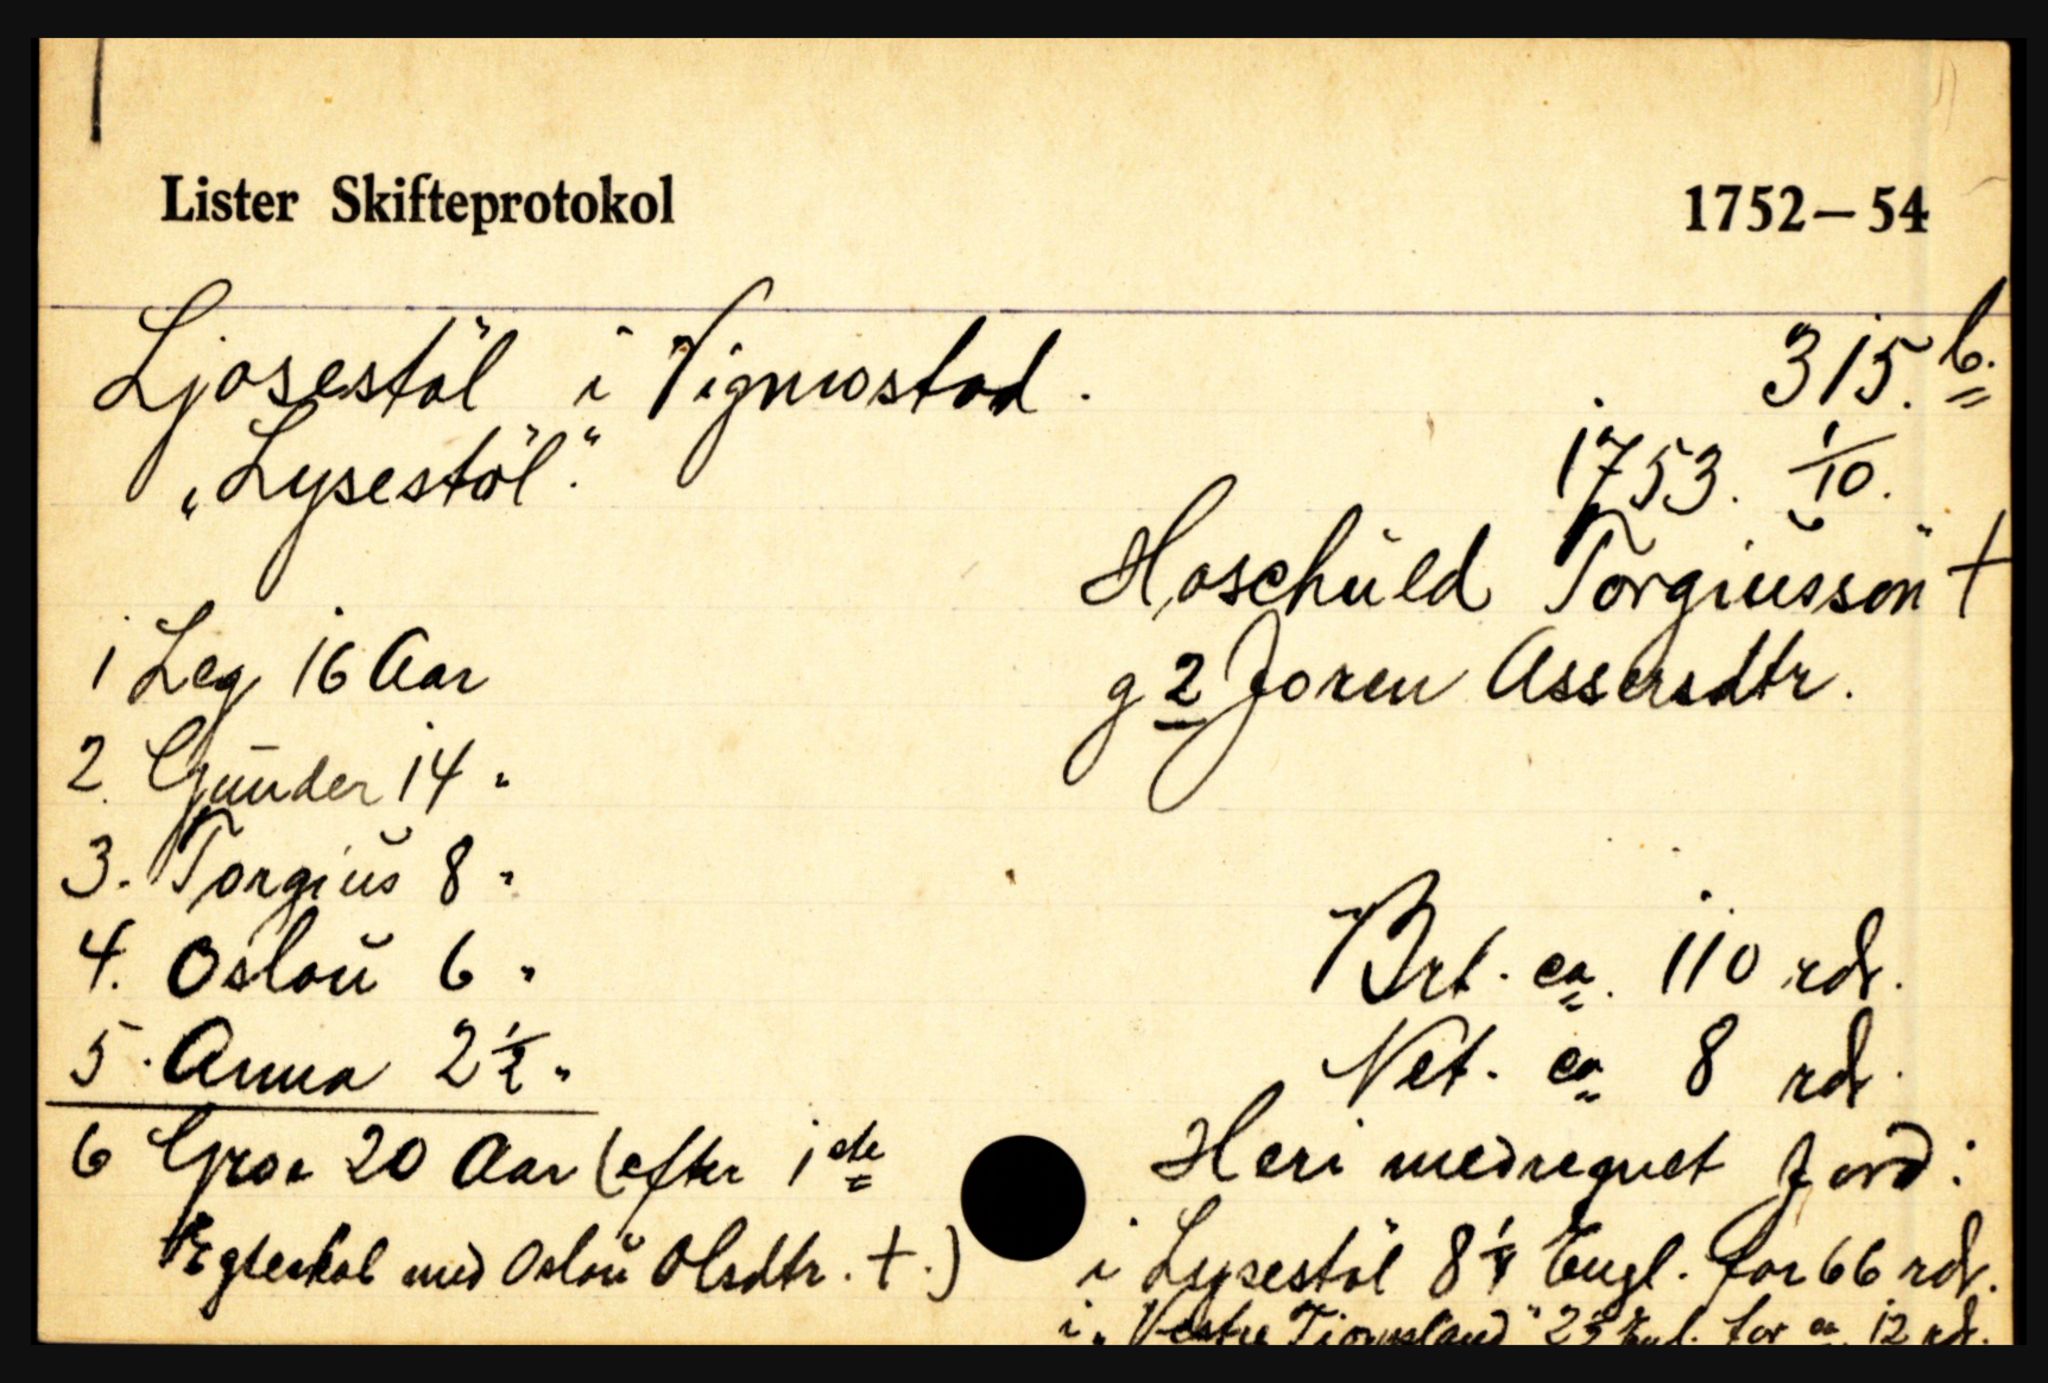 Lister Skifteprotokol 1752–54
Ljosestöl i Vigmostad. 315. b.
"Lysestöl". 1753. 1/10.
Hoschüld Torgiusson +
1 Leg 16 Aar g 2 Joren Assersdtr.
2. Gunder 14 "
3. Torgius 8 "
4. Oslou 6 " Brt. ca. 110 rdr.
5. Anna 2 1/2 " Net. ca 8 rdr.
6 Groe 20 Aar (efter 1ste Heri medregnet Jord:
Egteskab med Oslou Olsdtr. +.) i Lysestöl 8 1/4 Engl. for 66 rdr.
i "Vestre Tiomsland" 2 1/2 Engl. for ca 12 rdr.